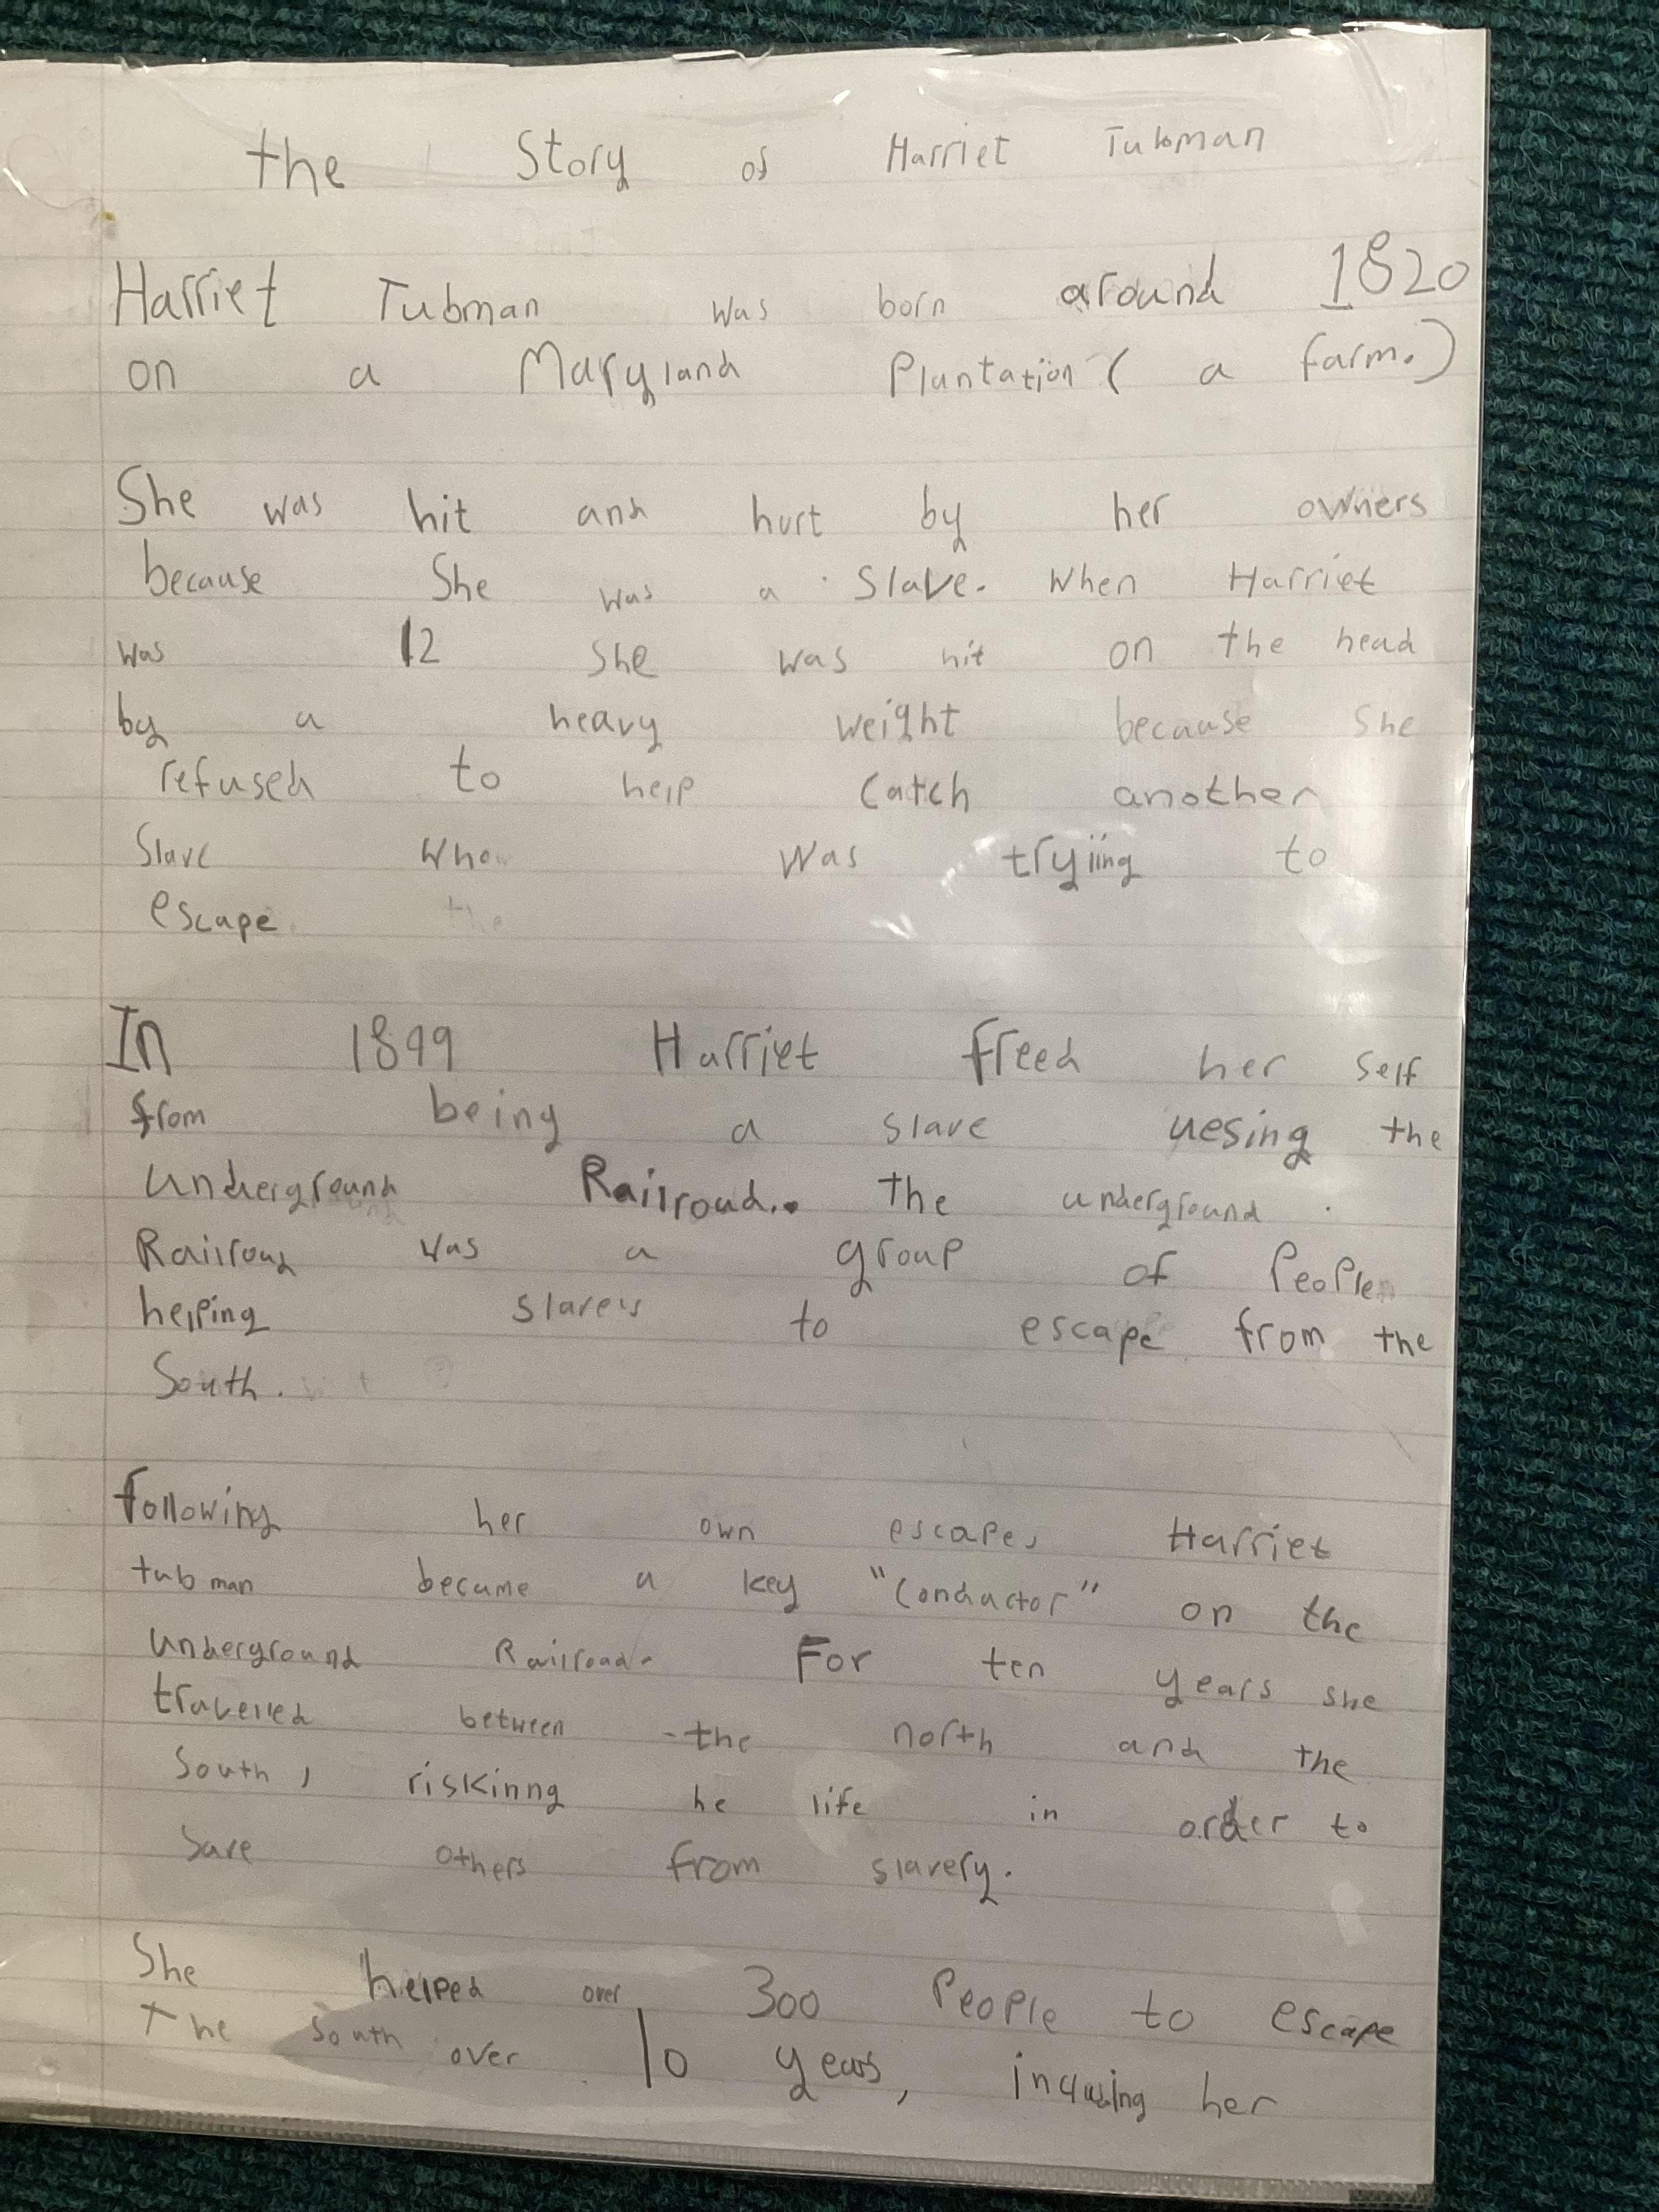 the Story of Harriet Tubman
Harriet Tubman was born around 1820
on a Maryland Plantation ( a farm.)
She was hit and hurt by her owners
because She was a Slave. When Harriet
was 12 She was hit on the head
by a heavy weight because She
refused to help Catch another
Slave who was tryiing to
escape. the
In 1899 Harriet freed her self
from being a slave uesing the
underground Railroad.. the underground
Railroad was a group of People
helping slaves to escape from the
South.
following her own escape, Harriet
tubman became a key "Conductor" on the
underground Railroad. For ten years she
travelled between the north and the
South, riskinng he life in order to
Save others from slavery.
She helped over 300 People to escape
The South over 10 years, her